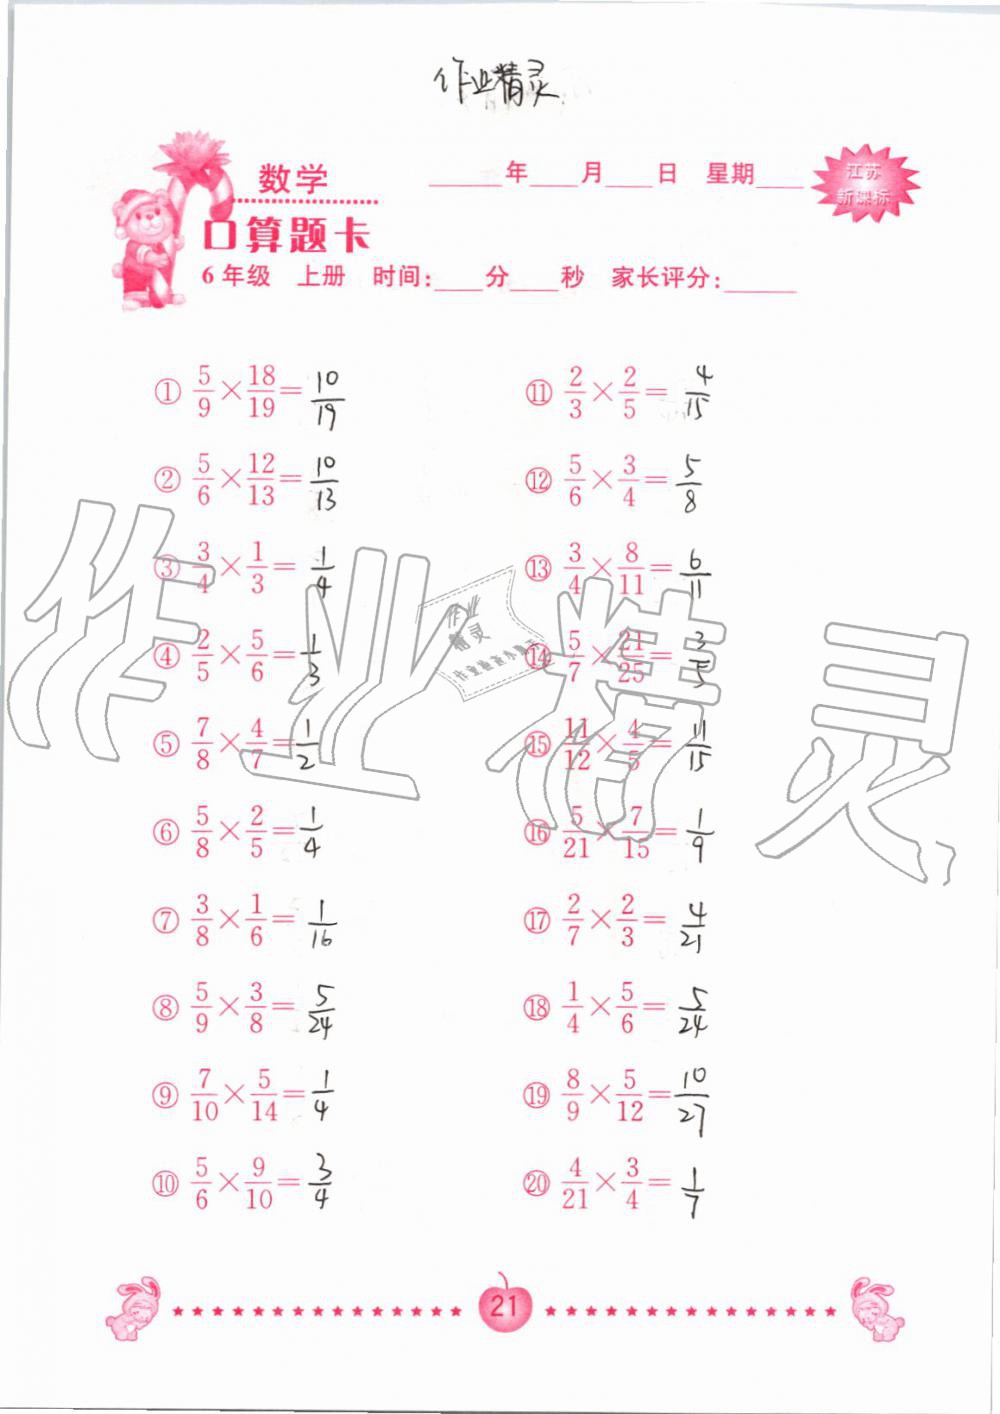 作业精灵
数学
口算题卡
____年____月____日 星期____
江苏
新课标
6年级 上册 时间:____分____秒 家长评分:____
① 5/9 × 18/19 = 10/19
② 5/6 × 12/13 = 10/13
③ 3/4 × 1/3 = 1/4
④ 2/5 × 5/6 = 1/3
⑤ 7/8 × 4/7 = 1/2
⑥ 5/8 × 2/5 = 1/4
⑦ 3/8 × 1/6 = 1/16
⑧ 5/9 × 3/8 = 5/24
⑨ 7/10 × 5/14 = 1/4
⑩ 5/6 × 9/10 = 3/4
⑪ 2/3 × 2/5 = 4/15
⑫ 5/6 × 3/4 = 5/8
⑬ 3/4 × 8/11 = 6/11
⑭ 5/7 × 21/25 = 3/5
⑮ 11/12 × 4/5 = 11/15
⑯ 5/21 × 7/15 = 1/9
⑰ 2/7 × 2/3 = 4/21
⑱ 1/4 × 5/6 = 5/24
⑲ 8/9 × 5/12 = 10/27
⑳ 4/21 × 3/4 = 1/7
作业精灵
作业
精灵
21